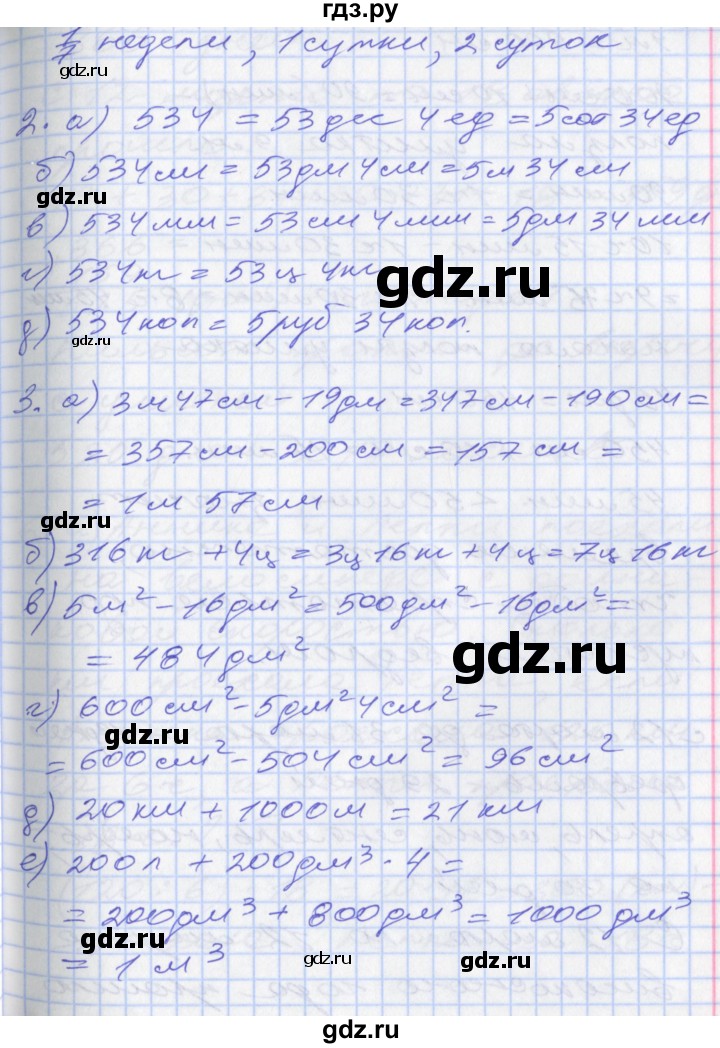 гдз.ру
1/7 недели, 1 сутки, 2 суток
2. а) 534 = 53 дес 4 ед = 5 сот 34 ед
б) 534 см = 53 дм 4 см = 5 м 34 см
gdz.ru
в) 534 мм = 53 см 4 мм = 5 дм 34 мм
г) 534 кг = 53 ц 4 кг
gdz.ru
gdz.ru
д) 534 коп = 5 руб 34 коп.
3. а) 3 м 47 см - 19 дм = 347 см - 190 см =
= 357 см - 200 см = 157 см =
= 1 м 57 см
gdz.ru
б) 316 кг + 4 ц = 3 ц 16 кг + 4 ц = 7 ц 16 кг
в) 5 м² - 16 дм² = 500 дм² - 16 дм² =
= 484 дм²
gdz.ru
г) 600 см² - 5 дм² 4 см² =
gdz.ru
= 600 см² - 504 см² = 96 см²
д) 20 км + 1000 м = 21 км
е) 200 л + 200 дм³ · 4 =
= 200 дм³ + 800 дм³ = 1000 дм³
gdz.ru
= 1 м³
gdz.ru
gdz.ru
gdz.ru